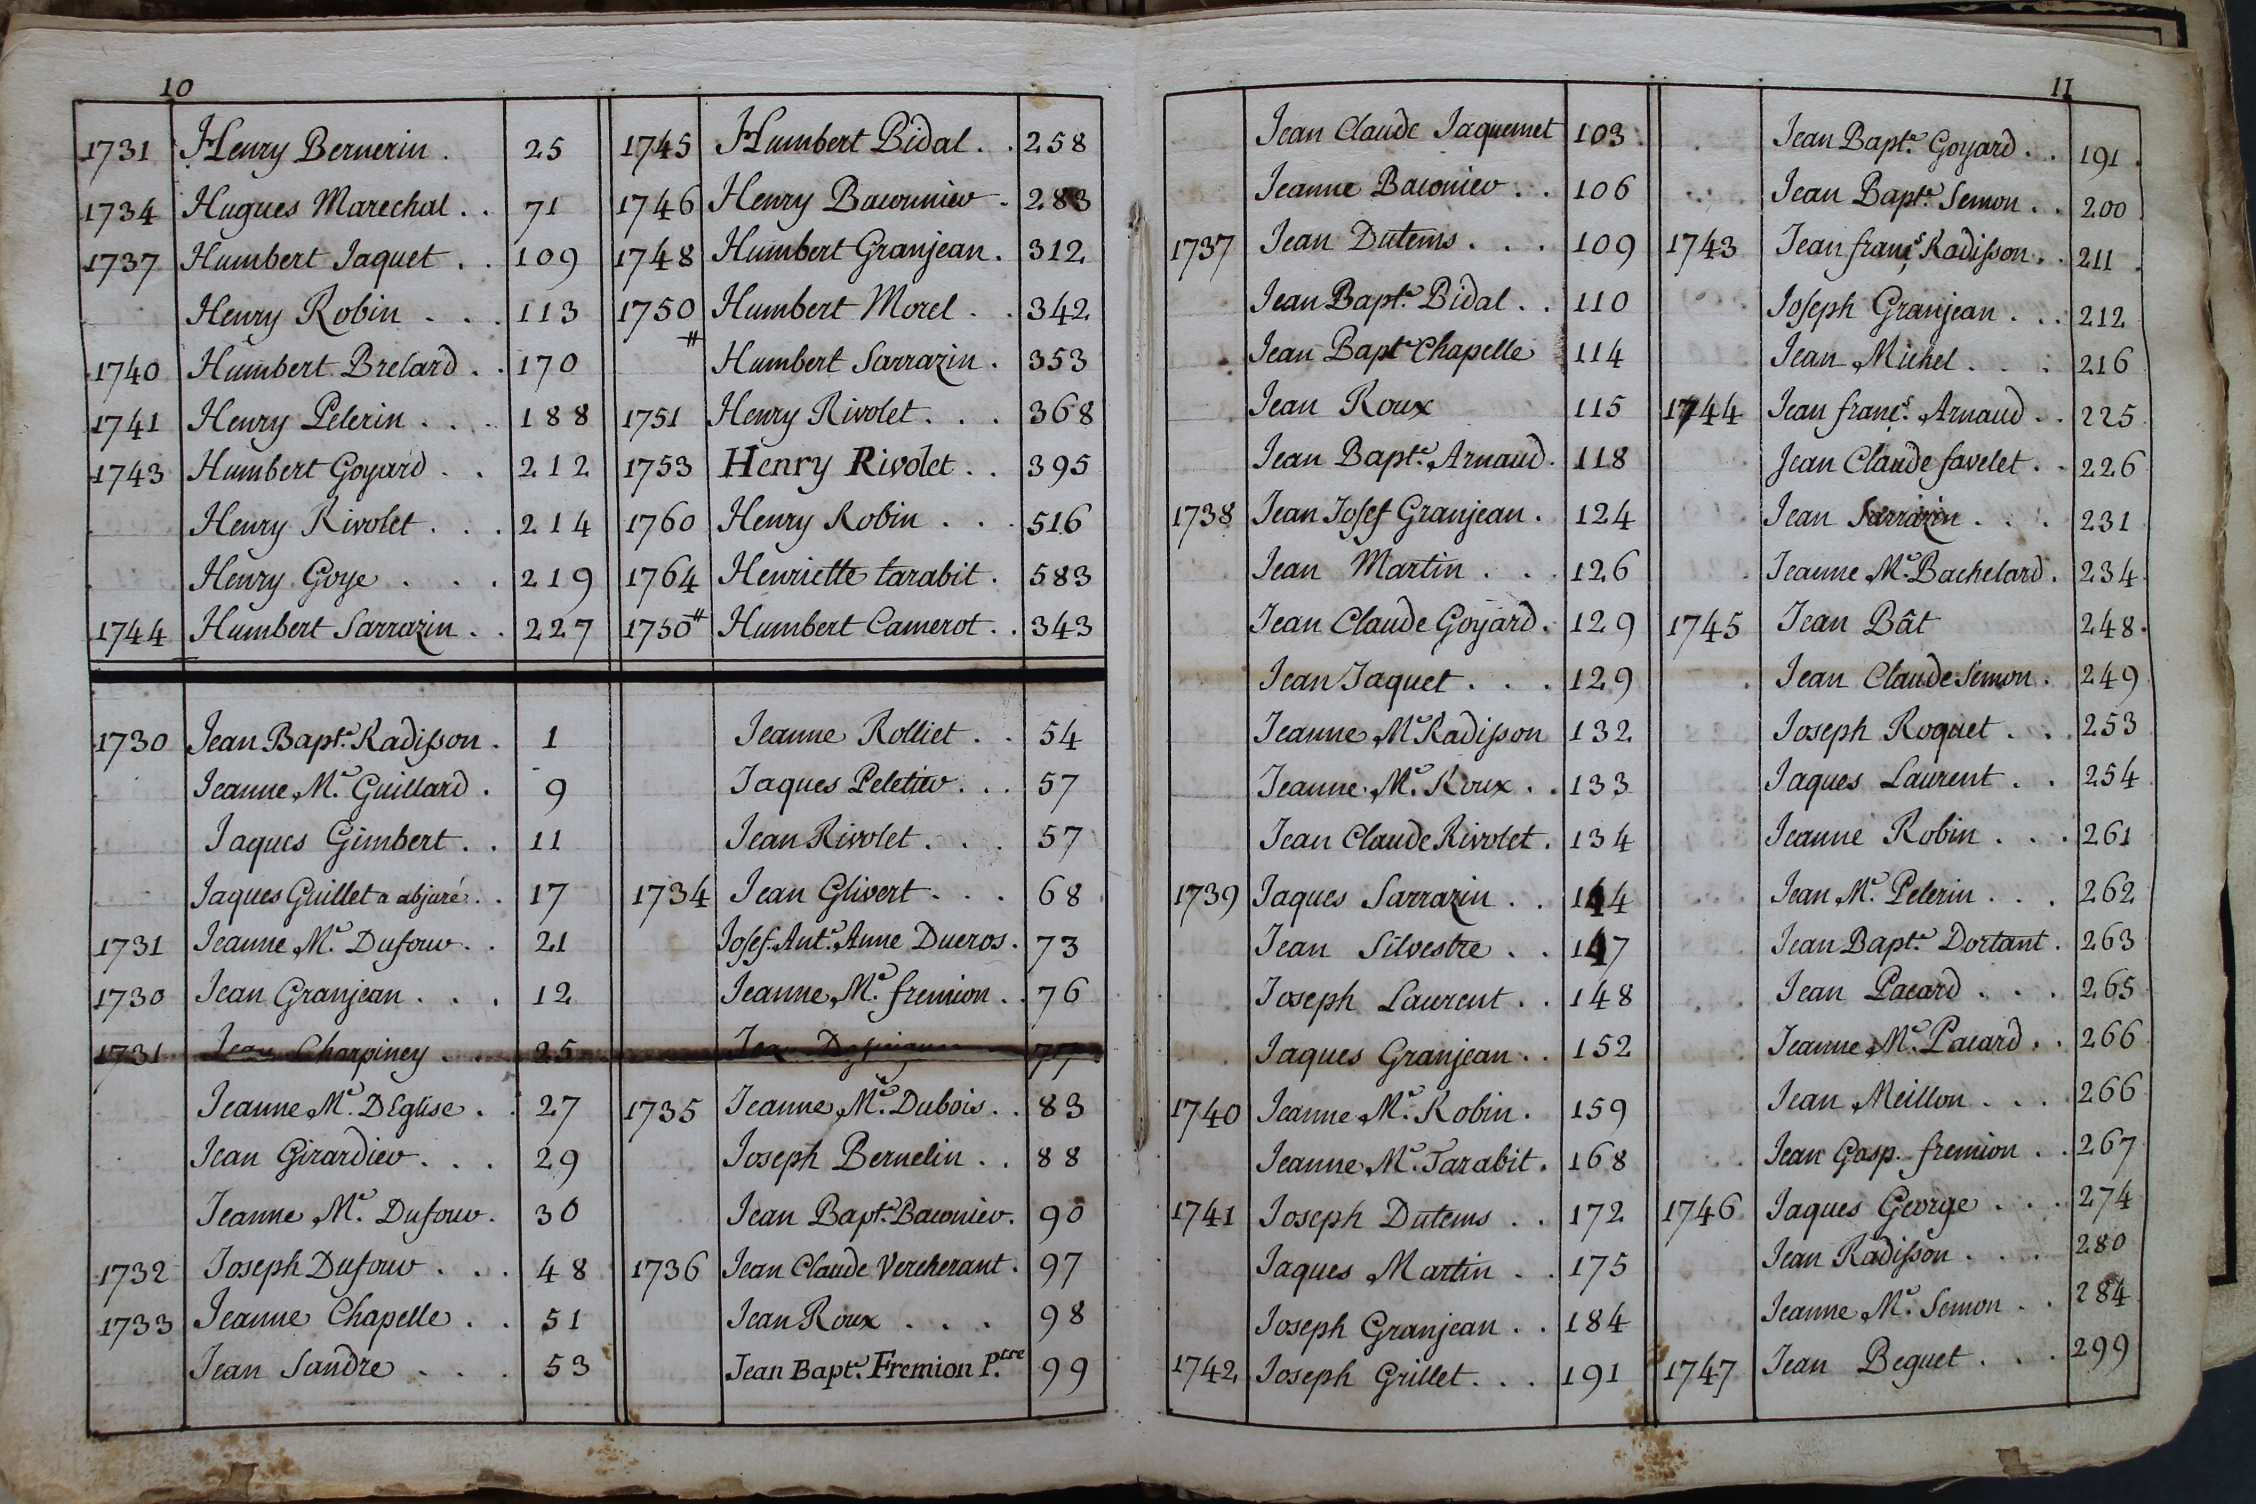 10
1731 Henry Bernerin . 25
1734 Hugues Marechal . . 71
1737 Humbert Jaquet . . 109
Henry Robin . . . 113
1740 Humbert Brelard . . 170
1741 Henry Pelerin . . . 188
1743 Humbert Goyard . . 212
Henry Rivolet . . . 214
Henry Goye . . . 219
1744 Humbert Sarrazin . . 227
1745 Humbert Bidal . . 258
1746 Henry Baconnier . 283
1748 Humbert Granjean . 312
1750 Humbert Morel . . 342
# Humbert Sarrazin . 353
1751 Henry Rivolet . . . 368
1753 Henry Rivolet . . 395
1760 Henry Robin . . . 516
1764 Henriette tarabit . 583
1750# Humbert Camerot . . 343
1730 Jean Bapt.e Radisson . 1
Jeanne M.e Guillard . 9
Jaques Gimbert . . 11
Jaques Guillet a abjuré . . 17
1731 Jeanne M.e Dufour . . 21
1730 Jean Granjean . . . 12
1731 Jean Charpiney . . . 25
Jeanne M.e DEglise . . 27
Jean Girardier . . . 29
Jeanne M.e Dufour . 30
1732 Joseph Dufour . . . 48
1733 Jeanne Chapelle . . 51
Jean Sandre . . . 53
Jeanne Rolliet . . 54
Jaques Peletier . . . 57
Jean Rivolet . . . 57
1734 Jean Glivert . . . 68
Josef. Ant.e Anne Ducros . 73
Jeanne M.e fremion . . 76
77
1735 Jeanne M.e Dubois . . 83
Joseph Bernelin . . 88
Jean Bapt.e Baconier . 90
1736 Jean Claude Vercherant . 97
Jean Roux . . . 98
Jean Bapt.e Fremion P.tre 99
11
Jean Claude Jaquemet 103
Jeanne Baconier . . 106
1737 Jean Dutems . . . 109
Jean Bapt.e Bidal . . 110
Jean Bapt.e Chapelle 114
Jean Roux 115
Jean Bapt.e Arnaud . 118
1738 Jean Josef Granjean . 124
Jean Martin . . . 126
Jean Claude Goyard . 129
Jean Jaquet . . . 129
Jeanne M.e Radisson 132
Jeanne M.e Roux . . 133
Jean Claude Rivolet . 134
1739 Jaques Sarrazin . . 144
Jean Silvestre . . 147
Joseph Laurent . . 148
Jaques Granjean . . 152
1740 Jeanne M.e Robin . 159
Jeanne M.e Tarabit . 168
1741 Joseph Dutems . . 172
Jaques Martin . . 175
Joseph Granjean . . 184
1742 Joseph Grillet . . . 191
Jean Bapt.e Goyard . . 191
Jean Bapt.e Semon . . 200
1743 Jean franç.s Radisson . . 211
Joseph Granjean . . . 212
Jean Michel . . . 216
1744 Jean franç.s Arnaud . . 225
Jean Claude favelet . . 226
Jean Sarrazin . . . 231
Jeanne M.e Bachelard . 234
1745 Jean Bât 248
Jean Claude Semon . 249
Joseph Roquet . . . 253
Jaques Laurent . . 254
Jeanne Robin . . . 261
Jean M.e Pelerin . . . 262
Jean Bapt.e Dortant . 263
Jean Pacard . . . 265
Jeanne M.e Pacard . . 266
Jean Meillon . . . 266
Jean Gasp. fremion . . 267
1746 Jaques George . . . 274
Jean Radisson . . . 280
Jeanne M.e Semon . . 284
1747 Jean Beguet . . . 299